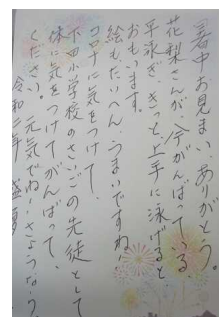 暑中お見まいありがとう。
花梨さんが、今がんばっている
平泳ぎ、きっと上手に泳げると
おもいます。
絵もたいへんうまいですね。
コロナに気をつけて、
下田小学校のさいごの先徒として
体に気をつけてがんばって
ください。
元気でね!さようなら。
令和二年 盛夏